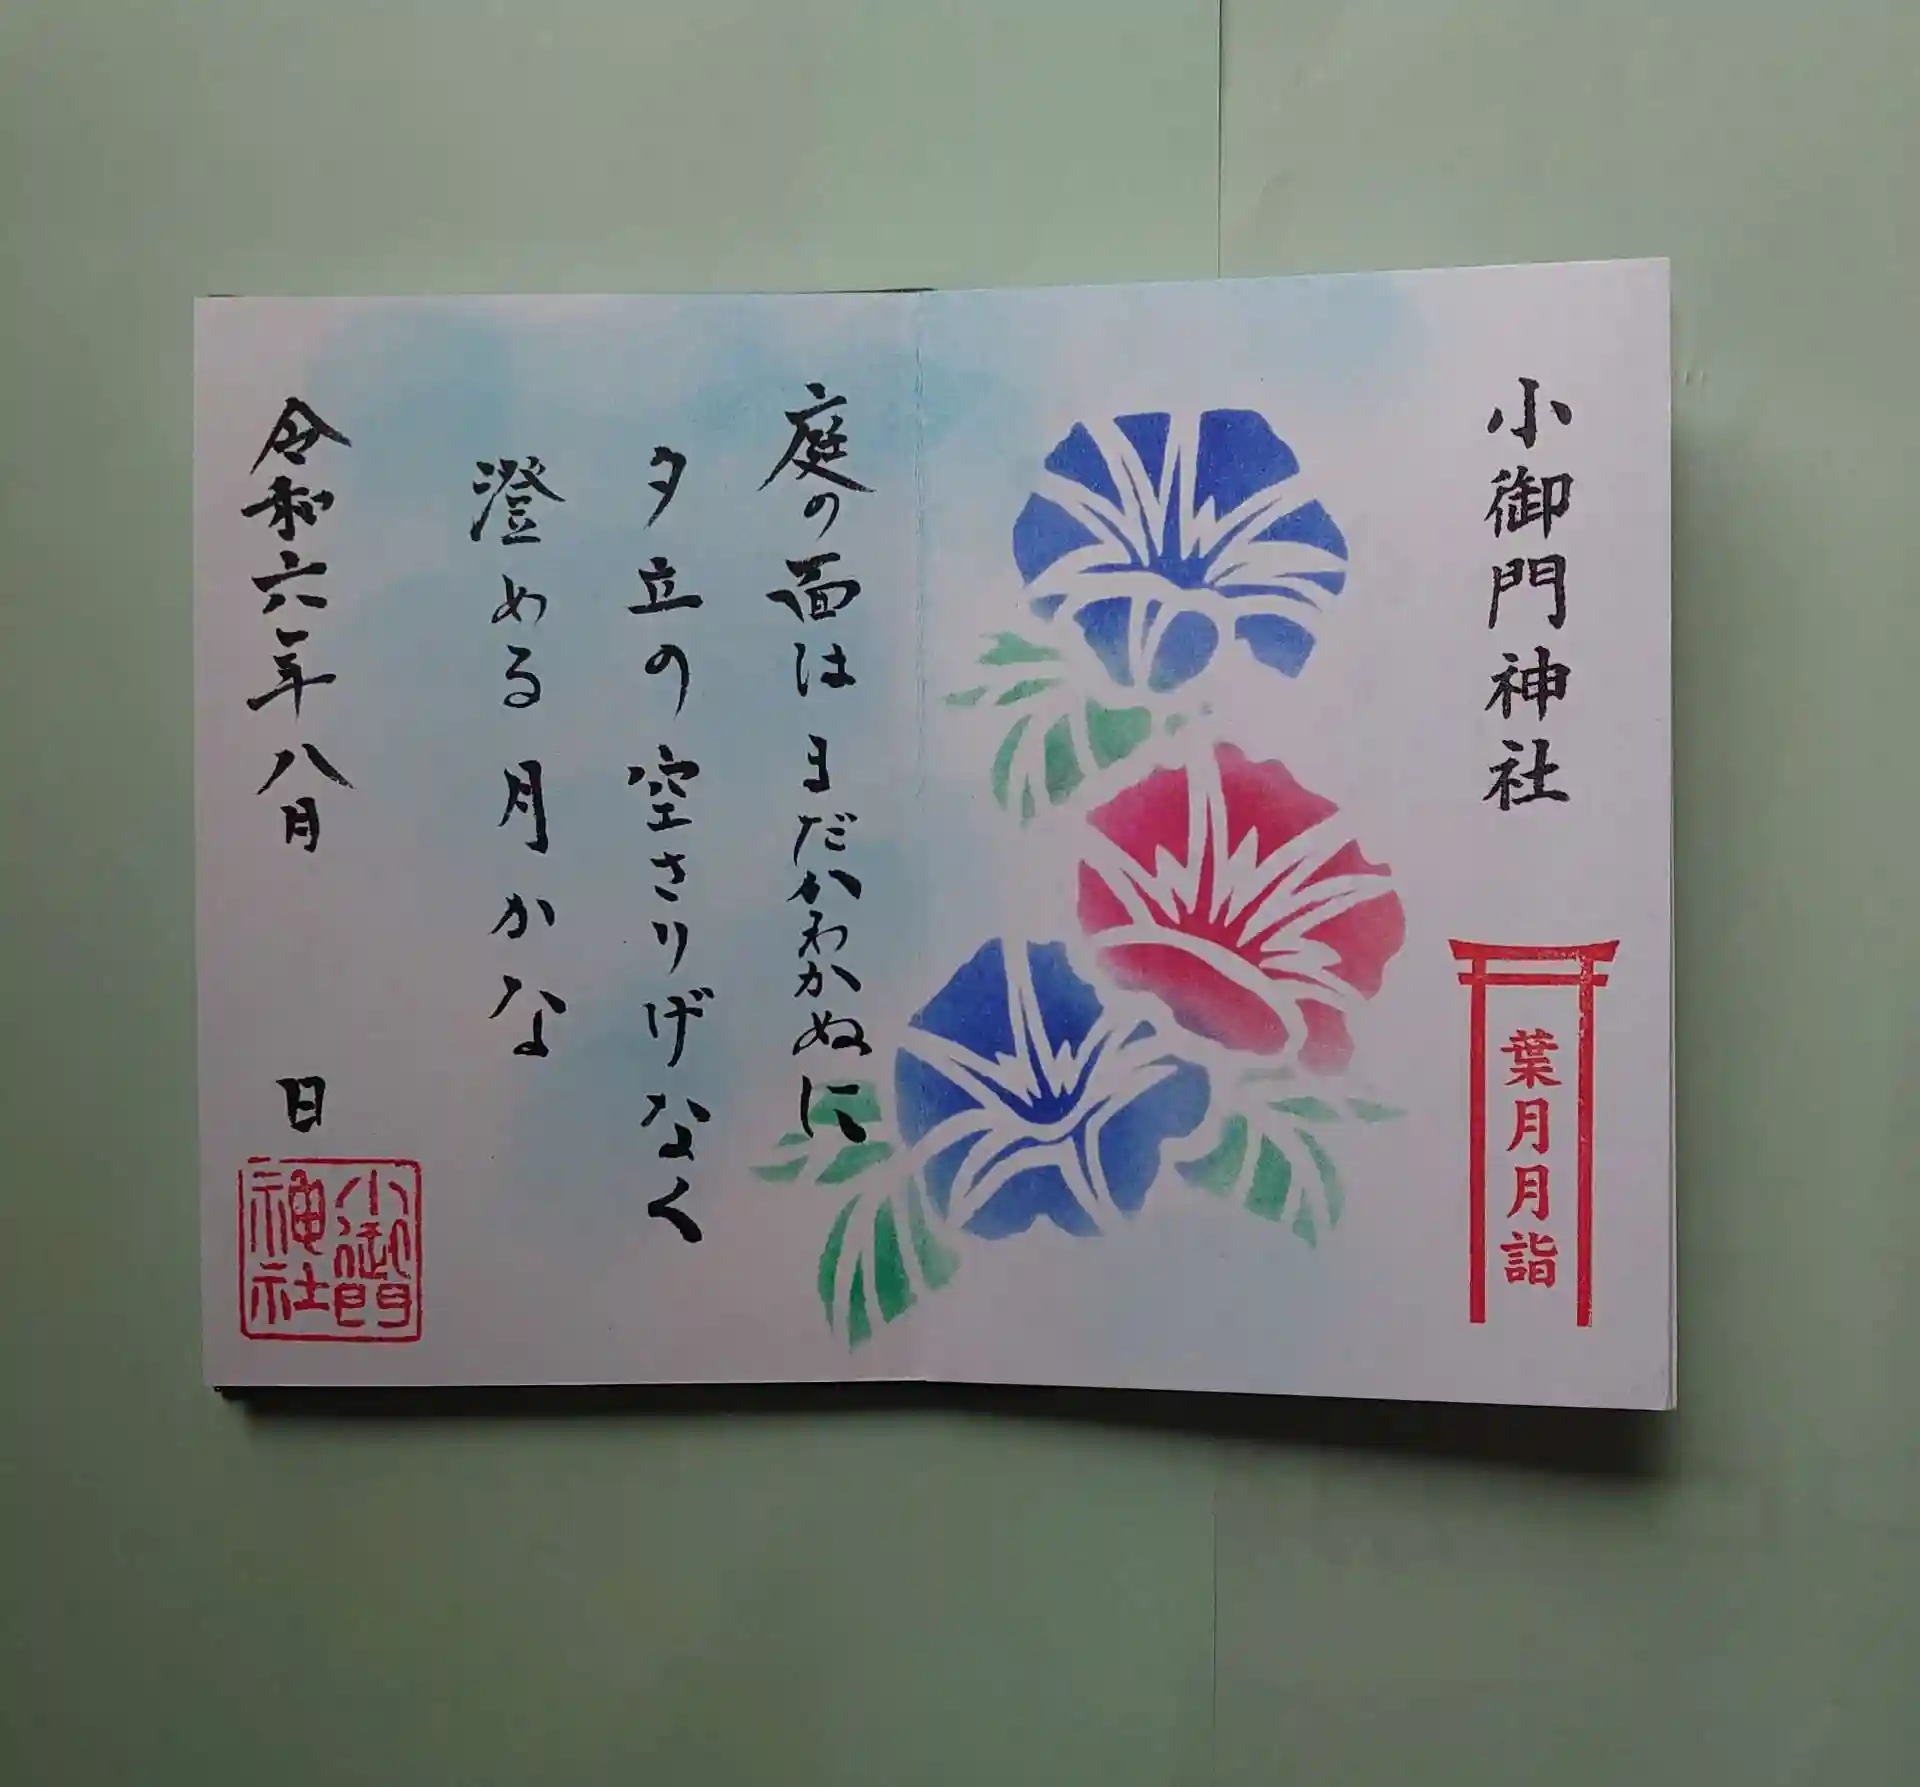 小御門神社
葉月月詣
庭の面はまだかわかぬに
夕立の空さりげなく
澄める月かな
令和六年八月 日
小御門
神社